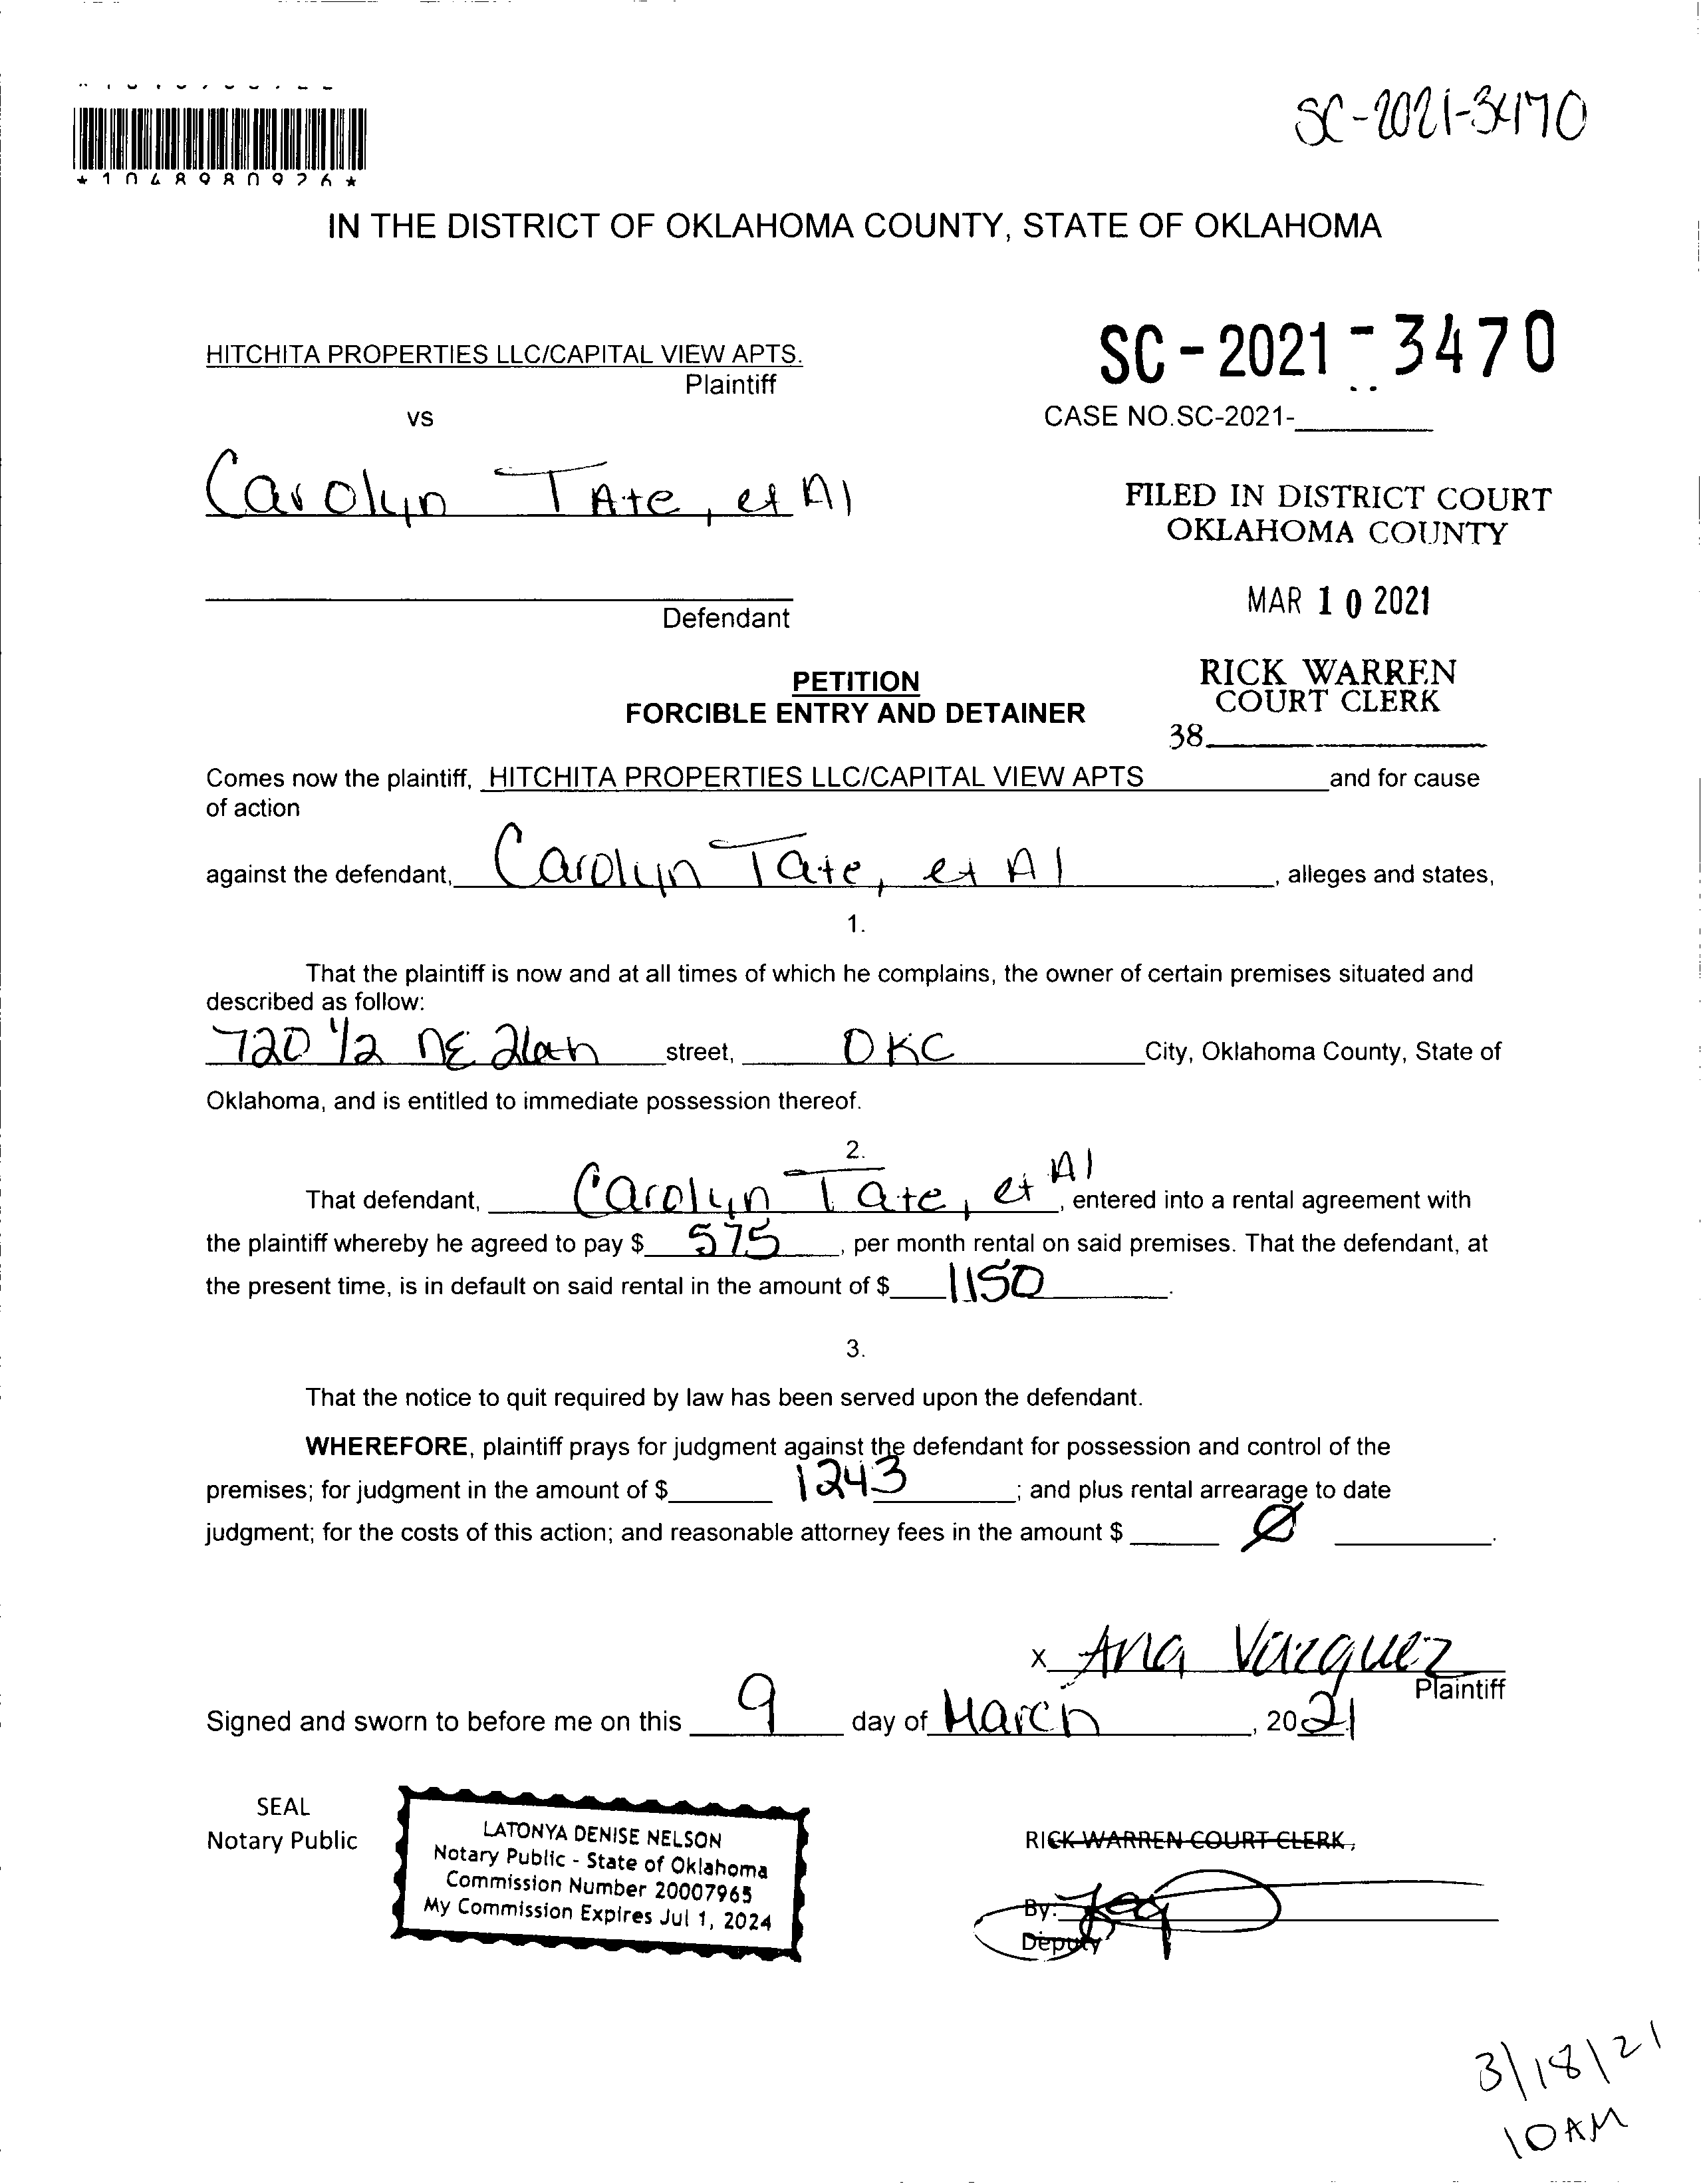 SC-2021-3470
*1048980926*
IN THE DISTRICT OF OKLAHOMA COUNTY, STATE OF OKLAHOMA
HITCHITA PROPERTIES LLC/CAPITAL VIEW APTS.
Plaintiff
SC-2021-3470
vs
CASE NO.SC-2021-
Carolyn Tate, et Al
FILED IN DISTRICT COURT
OKLAHOMA COUNTY
Defendant
MAR 10 2021
PETITION
FORCIBLE ENTRY AND DETAINER
RICK WARREN
COURT CLERK
38
Comes now the plaintiff, HITCHITA PROPERTIES LLC/CAPITAL VIEW APTS and for cause
of action
against the defendant, Carolyn Tate, et Al , alleges and states,
1.
That the plaintiff is now and at all times of which he complains, the owner of certain premises situated and
described as follow:
720 1/2 NE street, OKC City, Oklahoma County, State of
Oklahoma, and is entitled to immediate possession thereof.
2.
That defendant, Carolyn Tate, et Al , entered into a rental agreement with
the plaintiff whereby he agreed to pay $ 575 , per month rental on said premises. That the defendant, at
the present time, is in default on said rental in the amount of $ 1150 .
3.
That the notice to quit required by law has been served upon the defendant.
WHEREFORE, plaintiff prays for judgment against the defendant for possession and control of the
premises; for judgment in the amount of $ 1243 ; and plus rental arrearage to date
judgment; for the costs of this action; and reasonable attorney fees in the amount $ Ø .
x Ana Vazquez
Plaintiff
Signed and sworn to before me on this 9 day of March , 2021
SEAL
Notary Public
LATONYA DENISE NELSON
Notary Public - State of Oklahoma
Commission Number 20007965
My Commission Expires Jul 1, 2024
RICK WARREN COURT CLERK,
By:
Deputy
3/18/21
10AM